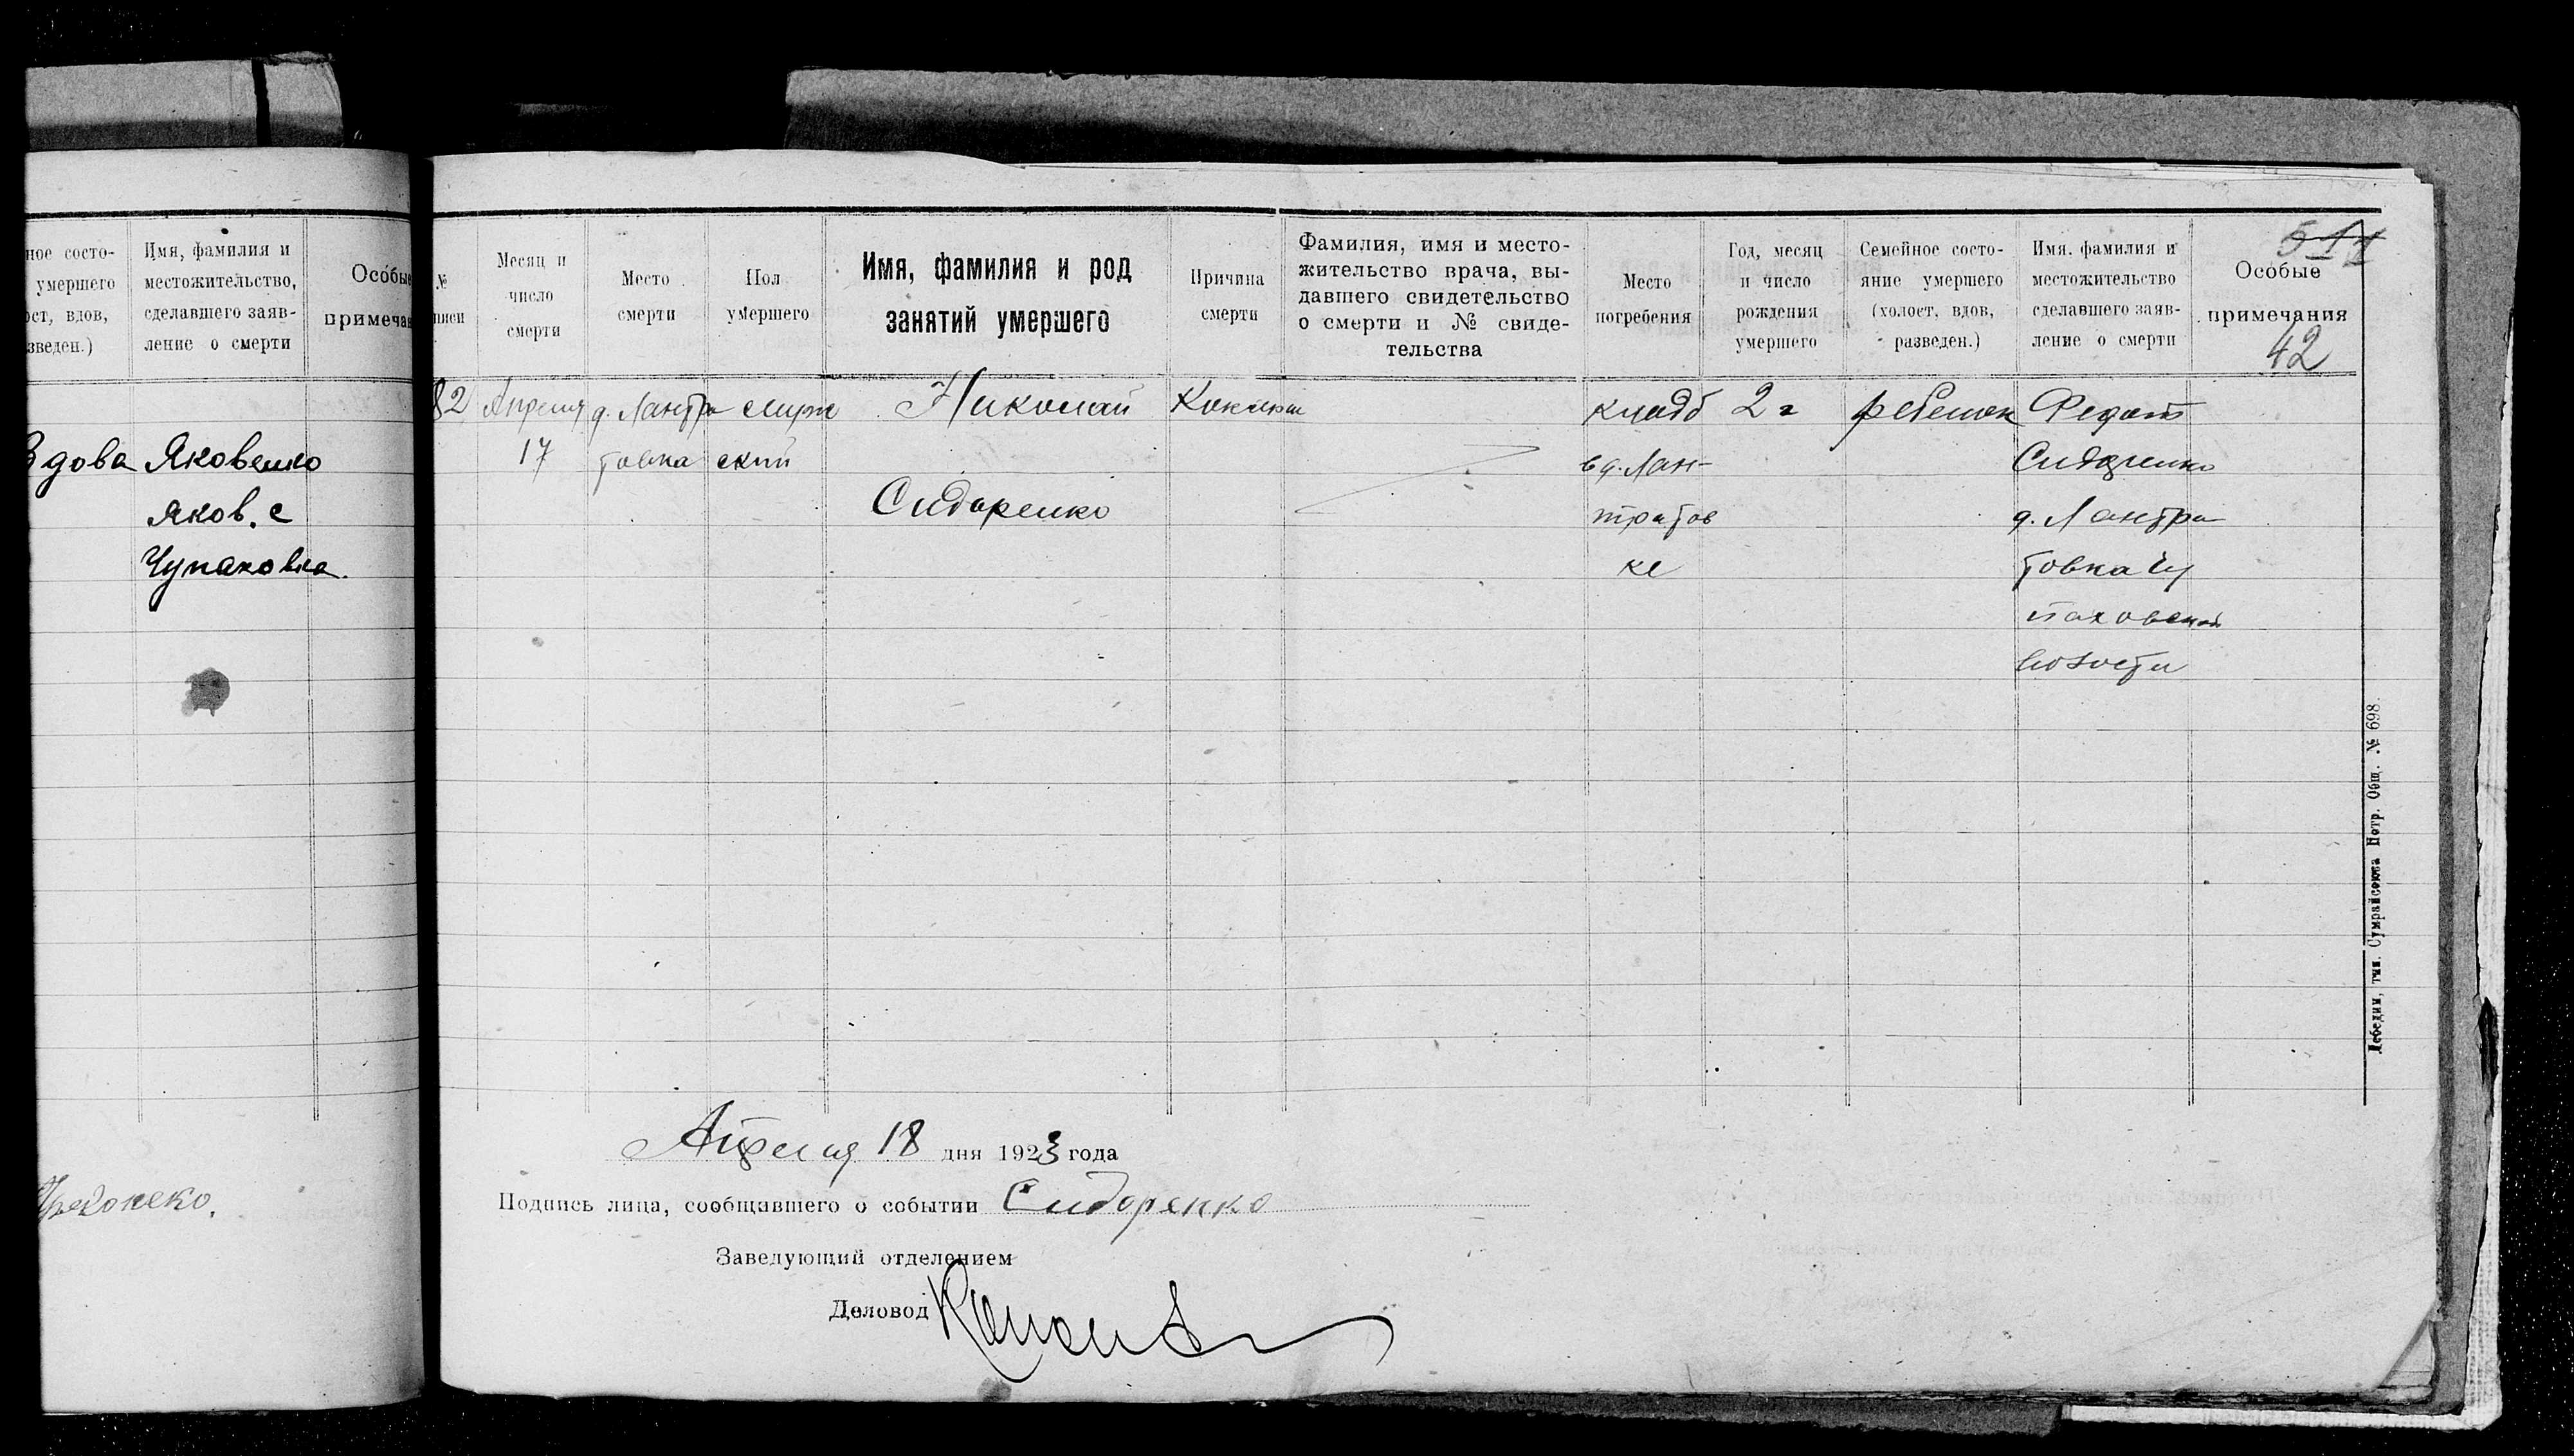 ное состо-
умершего
ост, вдов,
зведен.)
Имя, фамилия и
местожительство,
сделавшего заяв-
ление о смерти
Особые
примечан
Вдова Яковенко
Яков. с
Чупаховка.
511
№
писи
Месяц и
число
смерти
Место
смерти
Пол
умершего
Имя, фамилия и род
занятий умершего
Причина
смерти
Фамилия, имя и место-
жительство врача, вы-
давшего свидетельство
о смерти и № свиде-
тельства
Место
погребения
Год, месяц
и число
рождения
умершего
Семейное состо-
яние умершего
(холост, вдов,
разведен.)
Имя, фамилия и
местожительство
сделавшего заяв-
ление о смерти
Особые
примечания
42
82 Апреля д. Лантра Николай кладб 2 г ребенок Федот
17 товка ский в д. Лан- Сидоренко
Сидоренко тратов д. Лантра
ке товка Чу
паховской
волости
Апреля 18 дня 1923 года
Подпись лица, сообщившего о событии Сидоренко
Заведующий отделением
Деловод
Лебедин, тип. Сумрайсоюза Потр. Общ. № 698.